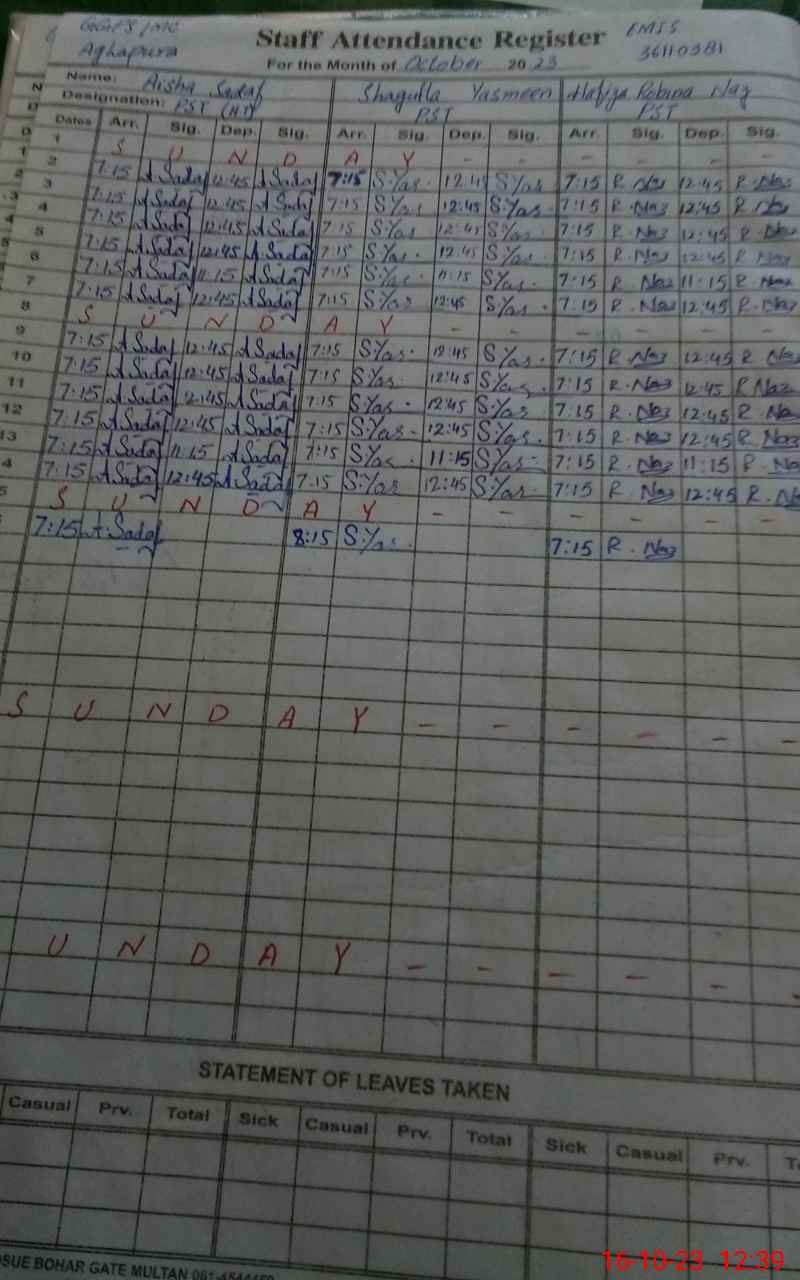 GGPS /MC EMIS
Aghapura Staff Attendance Register 36110381
For the Month of October 2023
Name: Aisha Sadaf Shagufta Yasmeen Hafiza Robina Naz
Designation: PST (HT) PST PST
Dates Arr. Sig. Dep. Sig. Arr. Sig. Dep. Sig. Arr. Sig. Dep. Sig.
1 S U N D A Y - - - - - -
2 7:15 A Sadaf 12:45 A Sadaf 7:15 S.Yas. 12:45 S.Yas 7:15 R. Naz 12:45 R. Naz
3 7:15 A Sadaf 12:45 A Sadaf 7:15 S.Yas 12:45 S.Yas. 7:15 R. Naz 12:45 R. Naz
4 7:15 A Sadaf 12:45 A Sadaf 7:15 S.Yas 12:45 S.Yas. 7:15 R. Naz 12:45 R. Naz
5 7:15 A Sadaf 12:45 A Sadaf 7:15 S.Yas. 12:45 S.Yas. 7:15 R. Naz 12:45 R. Naz
6 7:15 A Sadaf 11:15 A Sadaf 7:15 S.Yas. 11:15 S.Yas. 7:15 R. Naz 11:15 R. Naz
7 7:15 A Sadaf 12:45 A Sadaf 7:15 S.Yas 12:45 S.Yas. 7:15 R. Naz 12:45 R. Naz
8 S U N D A Y - - - - - -
9 7:15 A Sadaf 12:45 A Sadaf 7:15 S.Yas. 12:45 S.Yas. 7:15 R. Naz 12:45 R Naz
10 7:15 A Sadaf 12:45 A Sadaf 7:15 S.Yas. 12:45 S.Yas. 7:15 R. Naz 12:45 R Naz
11 7:15 A Sadaf 12:45 A Sadaf 7:15 S.Yas. 12:45 S.Yas 7:15 R. Naz 12:45 R. Naz
12 7:15 A Sadaf 12:45 A Sadaf 7:15 S.Yas. 12:45 S.Yas. 7:15 R. Naz 12:45 R. Naz
13 7:15 A Sadaf 11:15 A Sadaf 7:15 S.Yas. 11:15 S.Yas 7:15 R. Naz 11:15 R. Naz
4 7:15 A Sadaf 12:45 A Sadaf 7:15 S.Yas 12:45 S.Yas. 7:15 R. Naz 12:45 R. Naz
5 S U N D A Y - - - - - -
7:15 A.Sadaf 8:15 S.Yas. 7:15 R. Naz
S U N D A Y - - - - - -
U N D A Y - - - - - -
STATEMENT OF LEAVES TAKEN
Casual Prv. Total Sick Casual Prv. Total Sick Casual Prv.
OSUE BOHAR GATE MULTAN
16-10-23 12:39